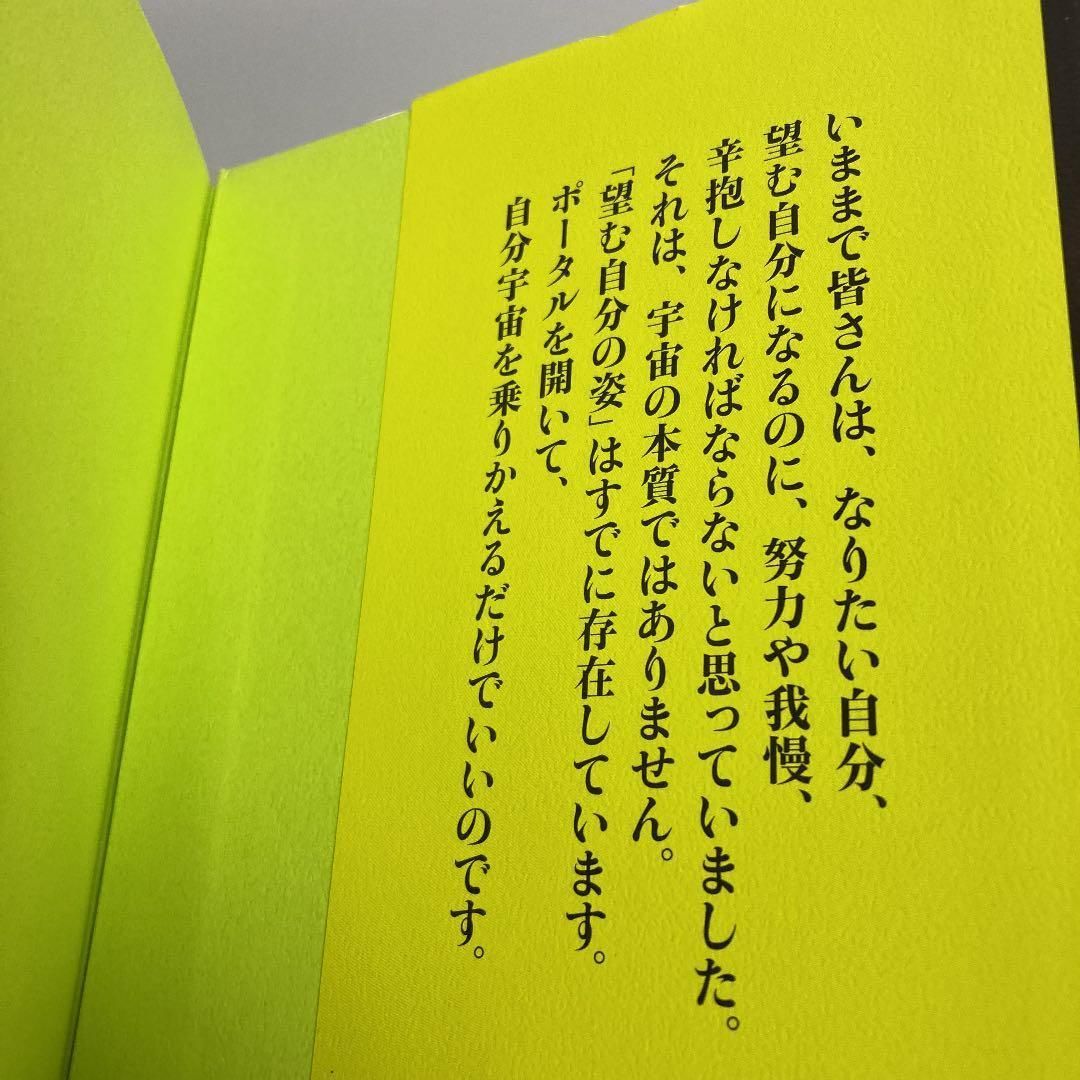 いままで皆さんは、なりたい自分、
望む自分になるのに、努力や我慢、
辛抱しなければならないと思っていました。
それは、宇宙の本質ではありません。
「望む自分の姿」はすでに存在しています。
ポータルを開いて、
自分宇宙を乗りかえるだけでいいのです。